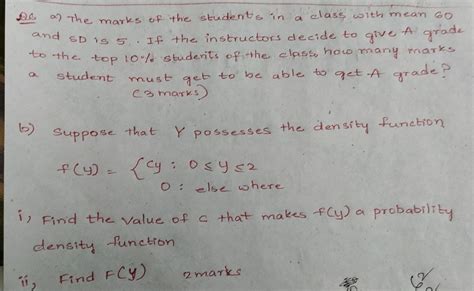 a) The marks of the students in a class with mean 60
and SD is 5. If the instructors decide to give A grade
to the top 10% students of the class, how many marks
a student must get to be able to get A grade?
(3 marks)
b) Suppose that Y possesses the density function
f(y) = { cy : 0 ≤ y ≤ 2
0 : else where
i, Find the value of c that makes f(y) a probability
density function
ii, Find F(y) 2 marks